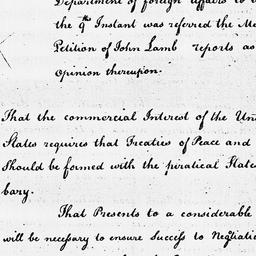 Department of foreign Affairs to w
the 9th Instant was referred the Me
Petition of John Lamb reports as
opinion thereupon.
That the commercial Interest of the Un
States requires that Treaties of Peace and
should be formed with the piratical States
bary.
That Presents to a considerable
will be necessary to ensure Success to Negtiatio